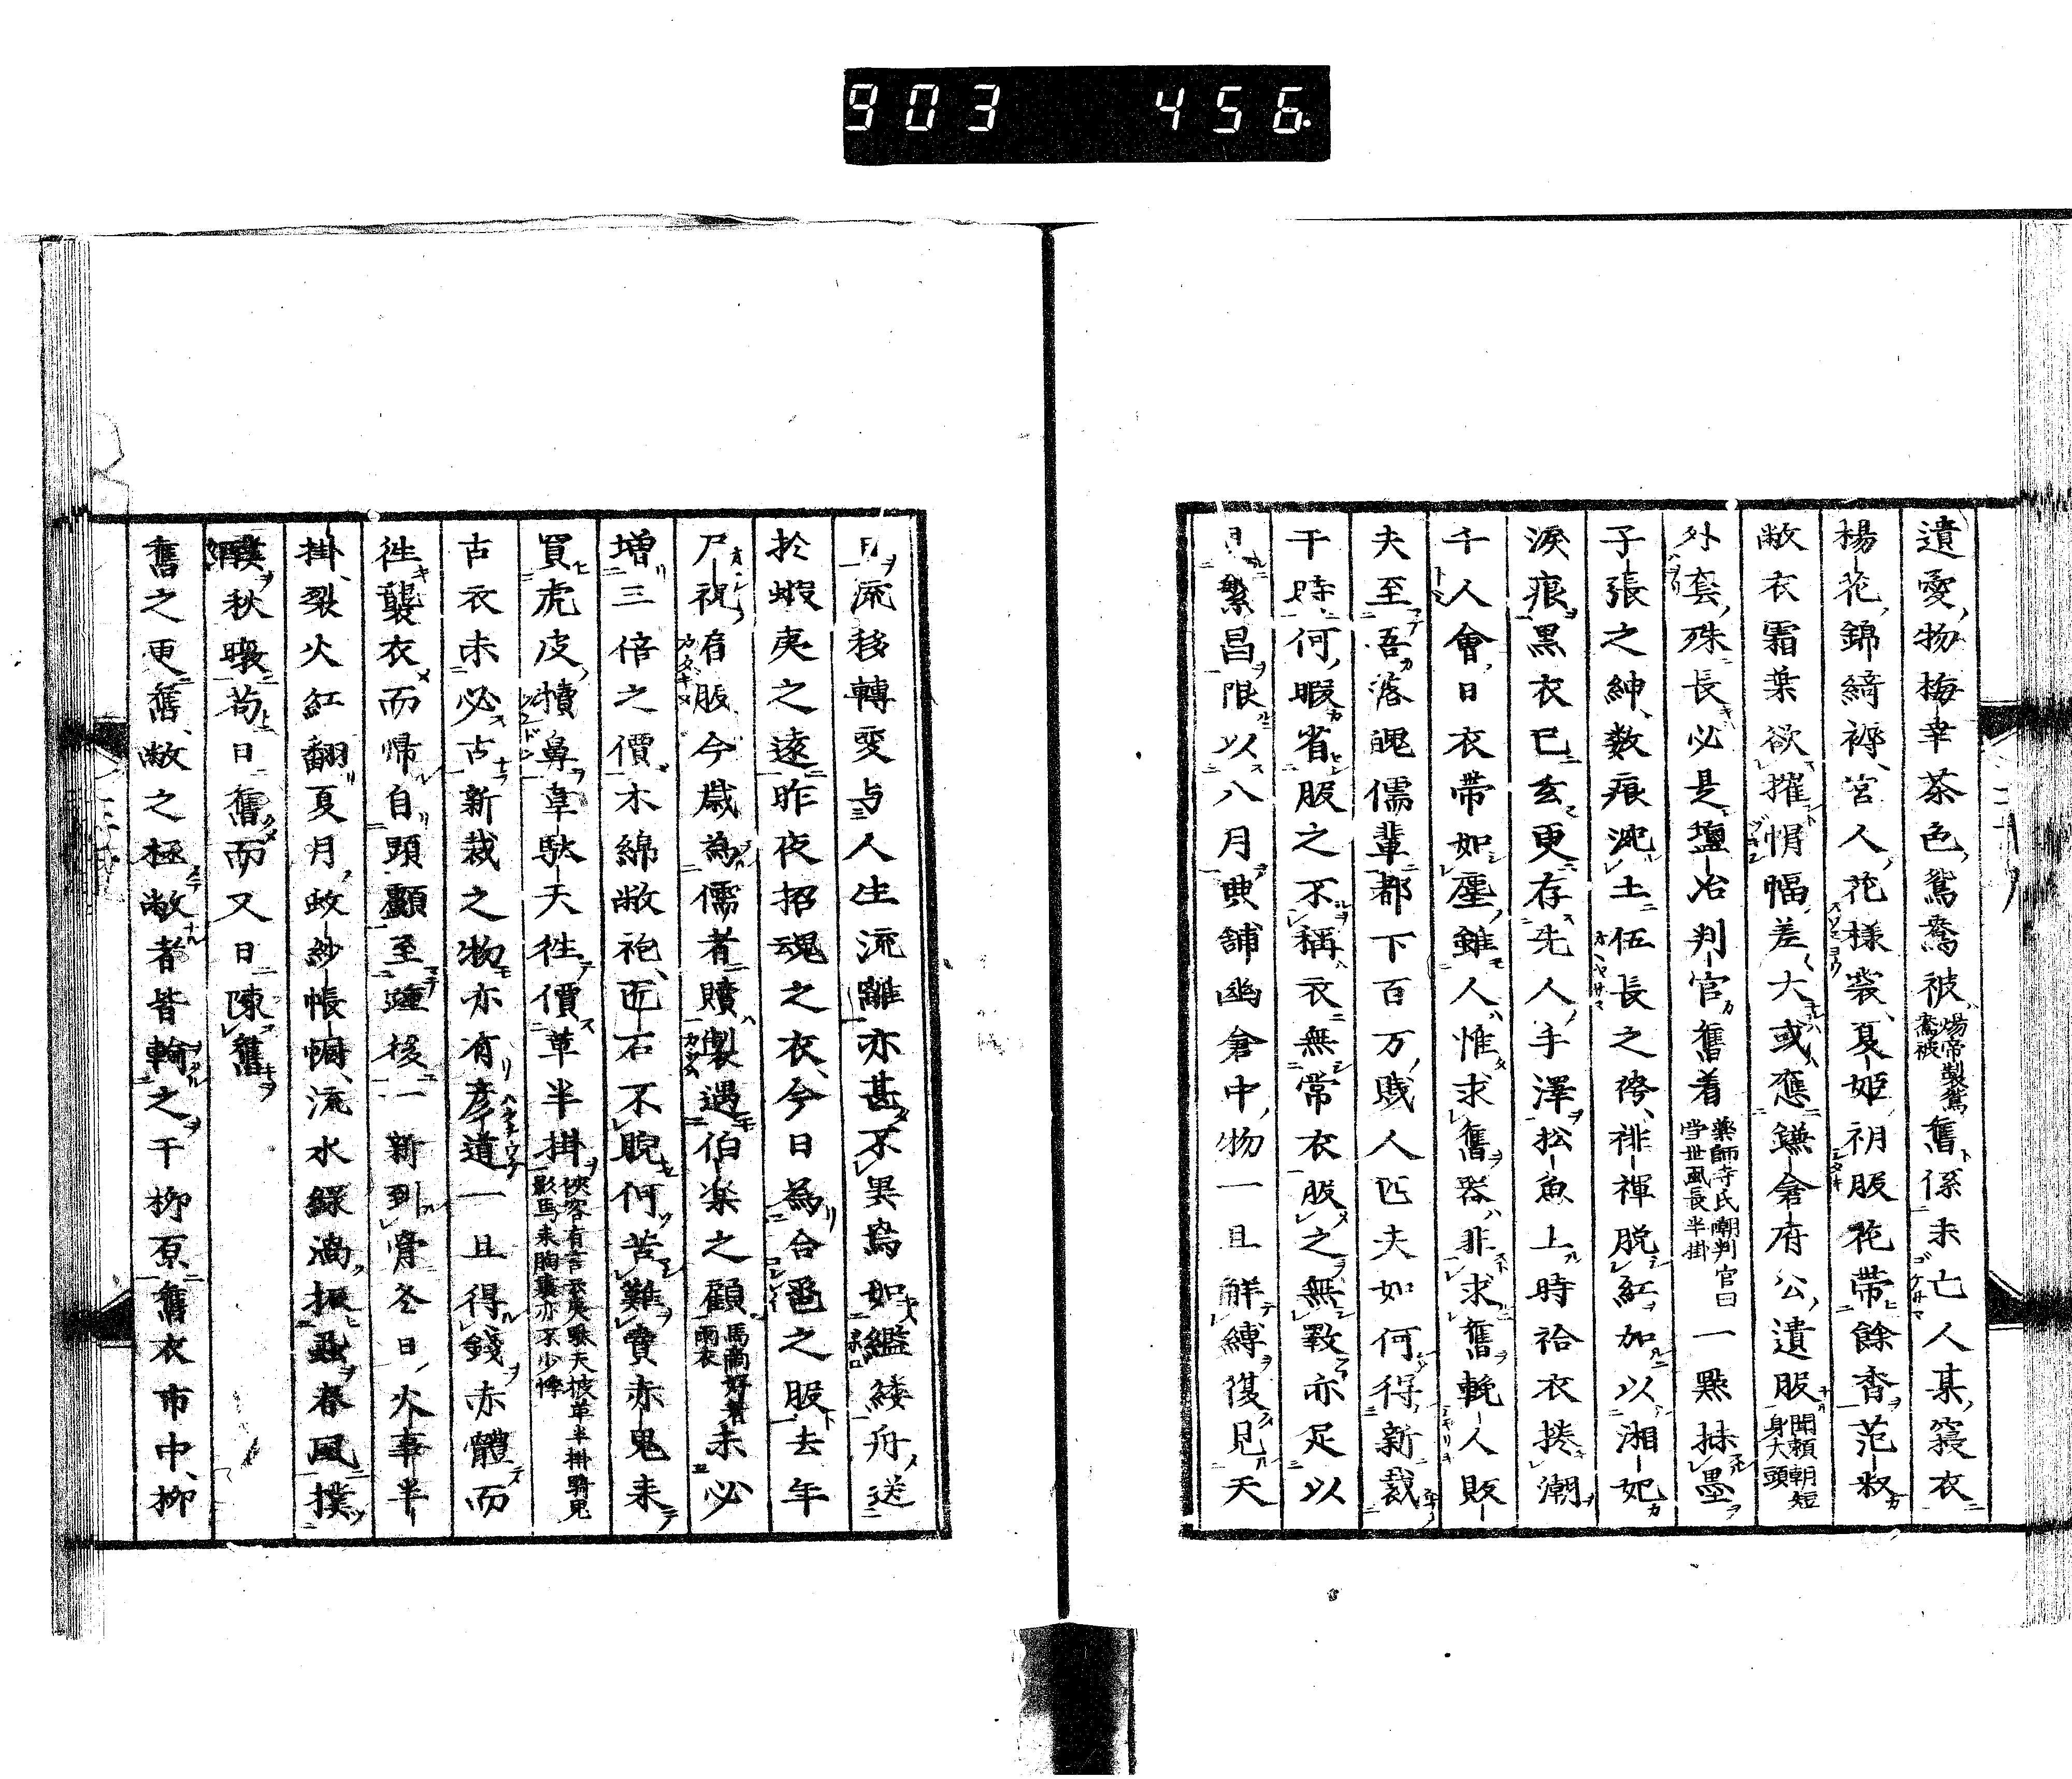 903 456
遺愛物梅幸茶色鴛鴦被煬帝製鴛鴦被舊係未亡人某寢衣
楊花錦綺褥宮人花様裳夏姫衵服花帯餘香范叔
敝衣霜葉欲摧幘幅差大或應鎌倉府公遺服聞頼朝短身大頭
外套殊長必是塩冶判官舊着薬師寺氏嘲判官曰當世風長半掛一點抹墨
子張之紳数痕泥土伍長之袴褌脱紅加以湘妃
涙痕黒衣已玄更存先人手澤松魚上時袷衣捲潮
千人會日衣帯如塵雖人惟求舊器非求舊輓人販
夫至吾落魄儒輩都下百万賤人匹夫如何得新裁
干時何暇省服之不稱衣無常衣服之無斁亦足以
繁昌限以八月典舗幽倉中物一旦解縛復見天
日流移轉変与人生流離亦甚不異焉如繿縷舟送
於蝦夷之遠昨夜招魂之衣今日為合巹之服去年
尸祝肩服今歳為儒者贖製遇伯楽之顧馬喬好著雨衣未必
増三倍之價木綿敝袍匠石不睨何苦難賣亦鬼来
買虎皮犢鼻韋駄天徃價革半掛
古衣未必古新裁之物亦有彦道一旦得錢赤體而
徃襲衣而帰自頭顱至踵後一新到膏冬日火事半
掛裂火紅翻夏月蚊紗帳幮流水緑漪振蝨春風撲
秋暾苟日舊而又日陳舊
舊之更舊敝之極敝者皆輸之干柳原舊衣市中柳